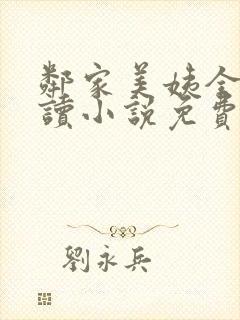 鄰家美姨全
讀小說免費
劉永兵